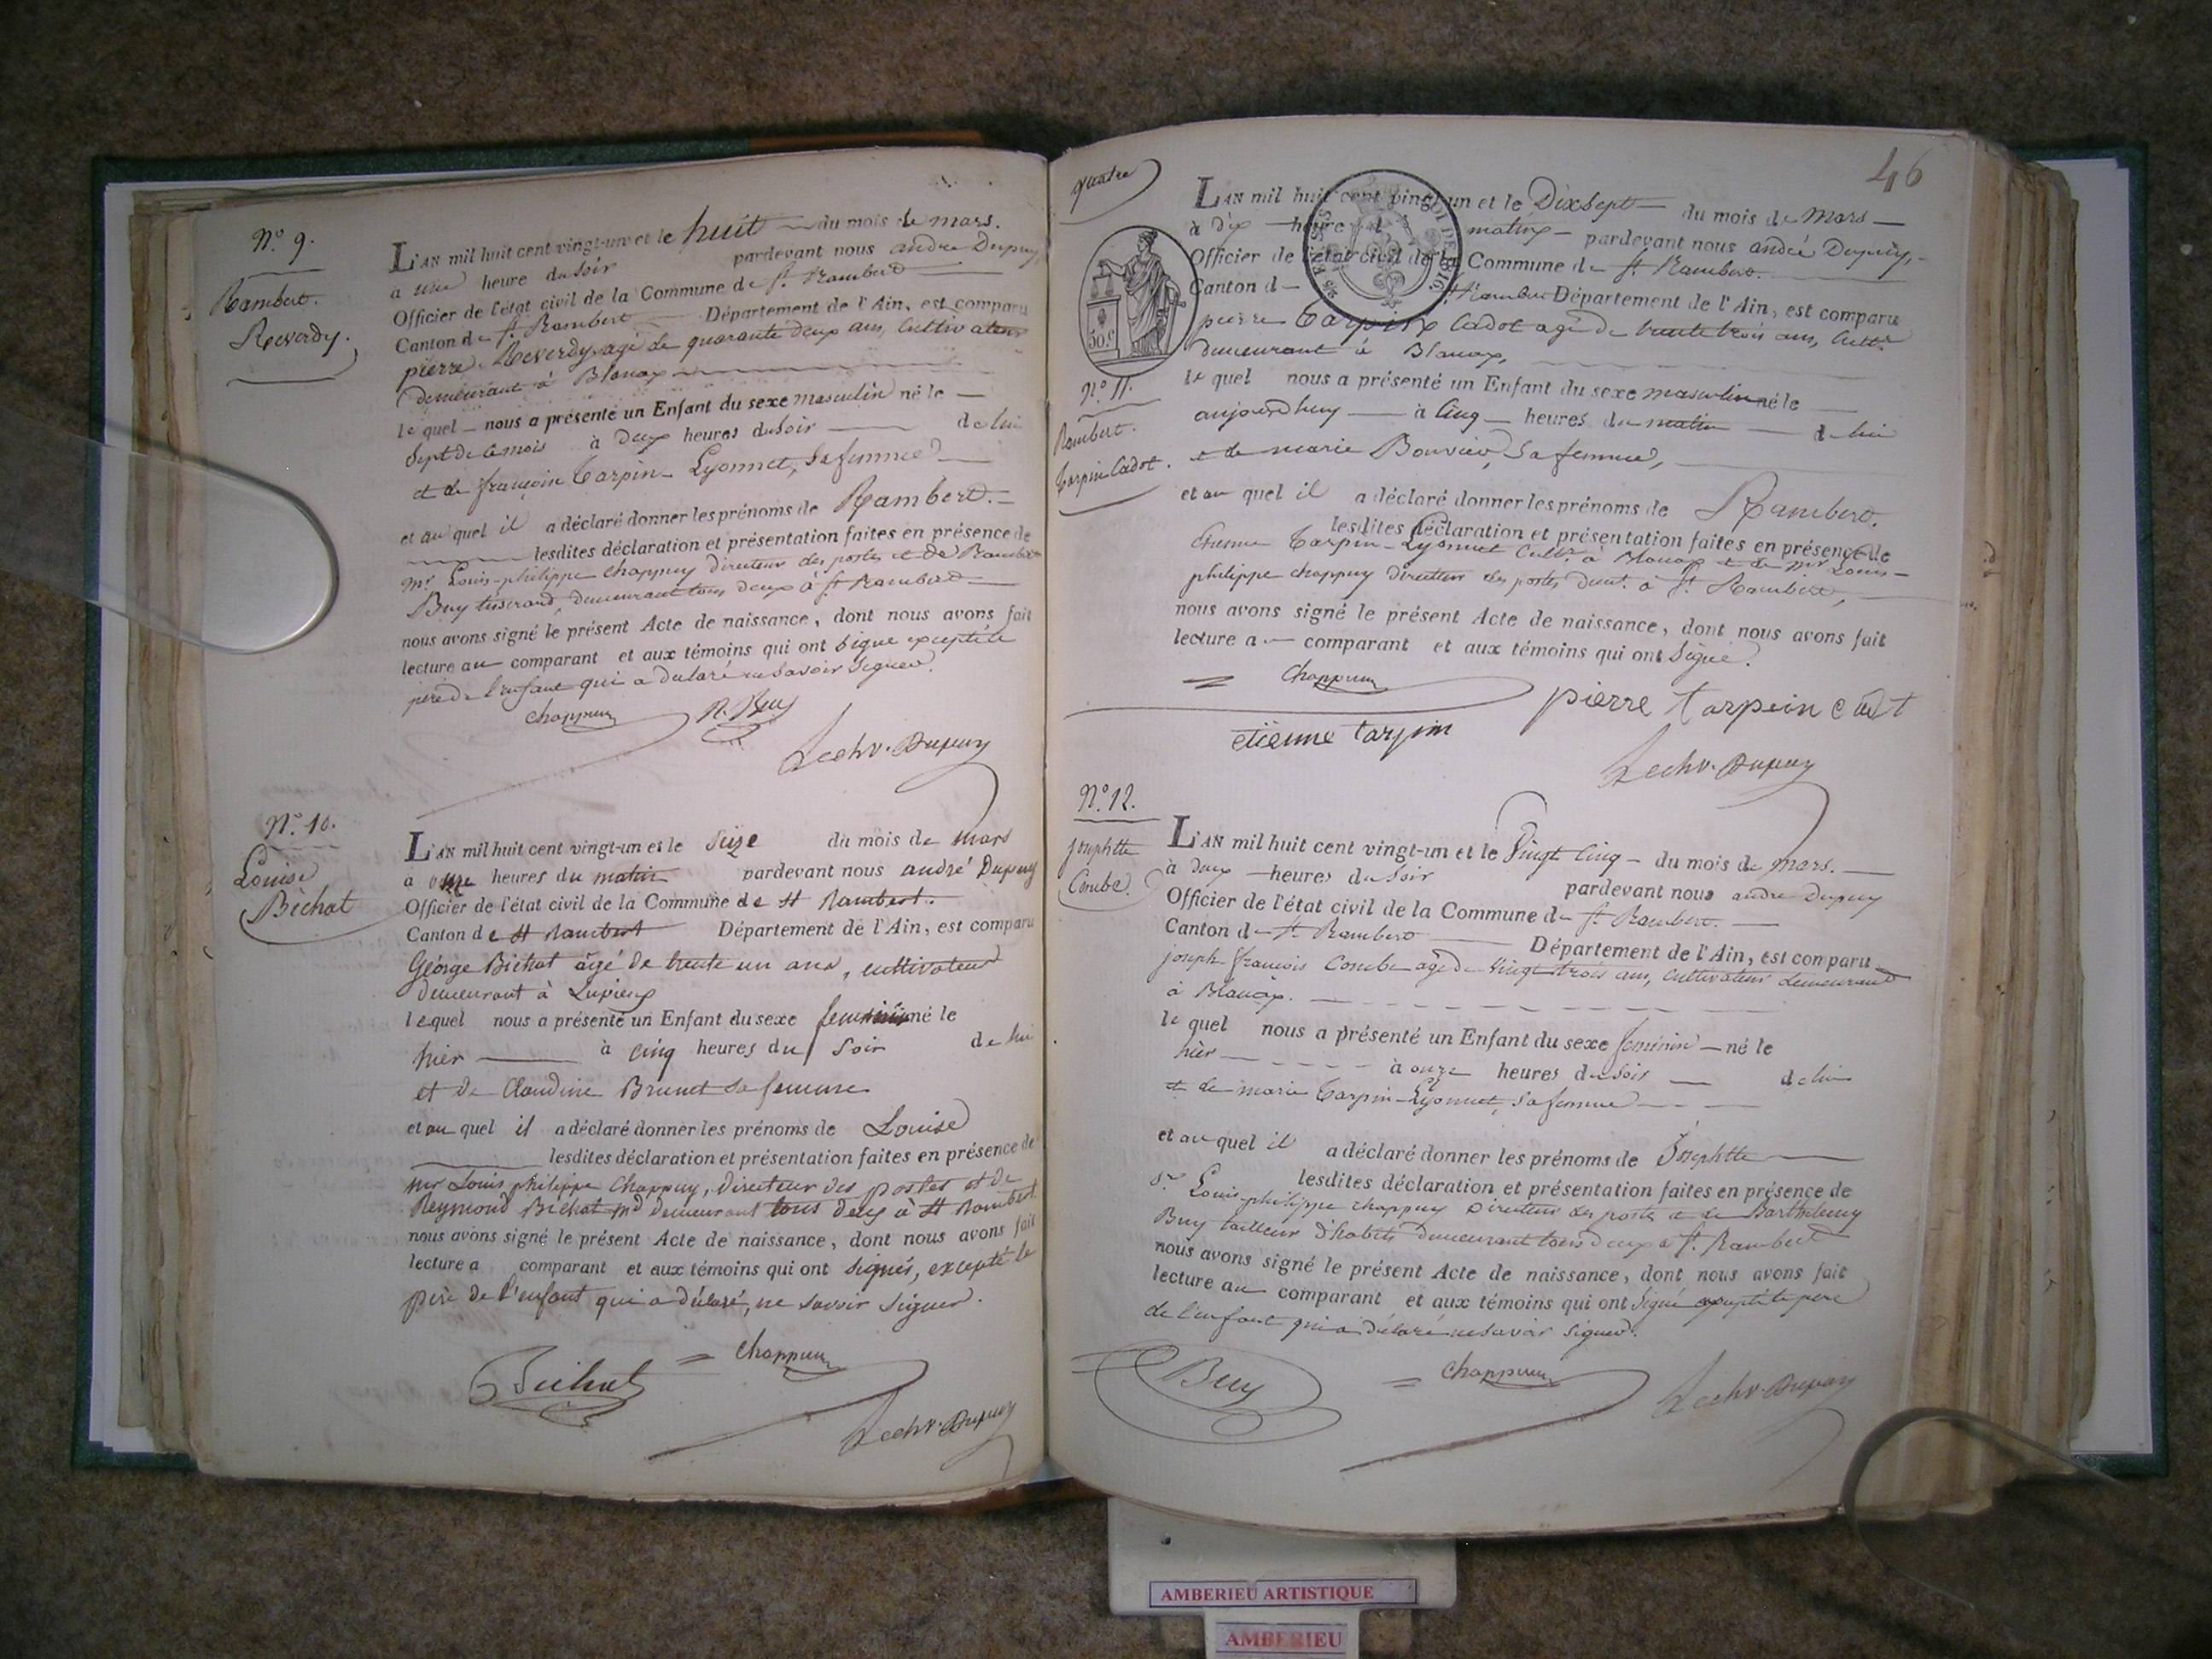 N.o 9.
Rambert.
Reverdy.
L'AN mil huit cent vingt-un et le huit du mois de mars.
a une heure du soir pardevant nous andre Dupuy,
Officier de l'état civil de la Commune de St. Rambert
Canton de St. Rambert Département de l'Ain, est comparu
pierre Reverdy agé de quarante deux ans, Cultivateur
demeurant à Blanax
le quel nous a présenté un Enfant du sexe masculin né le
Sept de ce mois à deux heures du soir de lui
et de françoise Tarpin-Lyonnet, Sa femme
et au quel il a déclaré donner les prénoms de Rambert.
lesdites déclaration et présentation faites en présence de
Mr. Louis-philippe Chappuy directeur des postes et de Rambert
Buy tisserand, demeurant tous deux à St. Rambert
nous avons signé le présent Acte de naissance, dont nous avons fait
lecture au comparant et aux témoins qui ont signé excepté le
père de l'enfant qui a déclaré ne savoir signer.
Chappuy R. Buy
Dupuy
N.o 10.
Louise
Bichat
L'AN mil huit cent vingt-un et le Seize du mois de mars
a onze heures du matin pardevant nous andré Dupuy
Officier de l'état civil de la Commune de St Rambert.
Canton de St Rambert Département de l'Ain, est comparu
George Bichat âgé de trente un ans, cultivateur
demeurant à Lupieux
lequel nous a présenté un Enfant du sexe feminin né le
hier à cinq heures du soir de lui
et de Claudine Brunet sa femme
et au quel il a déclaré donner les prénoms de Louise
lesdites déclaration et présentation faites en présence de
Mr Louis philippe Chappuy, directeur des postes et de
Reymond Bichat Md demeurant tous deux à St Rambert
nous avons signé le présent Acte de naissance, dont nous avons fait
lecture a comparant et aux témoins qui ont signés, excepté le
père de l'enfant qui a déclaré, ne savoir signer.
Bichat Chappuy
Dupuy
quatre
46
50.c
L'AN mil huit cent vingt-un et le Dix Sept du mois de Mars
à dix heures du matin pardevant nous andré Dupuy,
Officier de l'état civil de la Commune de St. Rambert.
Canton de St Rambert Département de l'Ain, est comparu
pierre Tarpin Cadot agé de trente trois ans, Cultr.
demeurant à Blanax,
N.o 11.
Rambert.
Tarpin Cadot.
le quel nous a présenté un Enfant du sexe masculin né le
aujourdhuy à Cinq heures du matin de lui
et de marie Bouvier, Sa femme,
et au quel il a déclaré donner les prénoms de Rambert.
lesdites déclaration et présentation faites en présence de
Etienne Tarpin-Lyonnet Cultr. à Blanax et de Mr Louis-
philippe chappuy directeur des postes demt. à St. Rambert,
nous avons signé le présent Acte de naissance, dont nous avons fait
lecture a comparant et aux témoins qui ont Signé.
Chappuy pierre tarpein cadot
etienne tarpin
Dupuy
N.o 12.
Josephtte
Combe.
L'AN mil huit cent vingt-un et le Vingt Cinq du mois de Mars.
à deux heures du soir pardevant nous andre Dupuy
Officier de l'état civil de la Commune de St. Rambert.
Canton de St. Rambert Département de l'Ain, est comparu
joseph-françois Combe agé de vingt trois ans, Cultivateur demeurant
à Blanax.
le quel nous a présenté un Enfant du sexe feminin né le
hier à onze heures du soir de lui
et de marie Tarpin-Lyonnet, Sa femme
et au quel il a déclaré donner les prénoms de Josephtte
lesdites déclaration et présentation faites en présence de
Sr. Louis-philippe chappuy Directeur des postes et de Barthelemy
Buy tailleur d'habits demeurant tous deux à St. Rambert
nous avons signé le présent Acte de naissance, dont nous avons fait
lecture au comparant et aux témoins qui ont Signé excepté le pere
de l'enfant qui a déclaré ne savoir signer.
Buy Chappuy Dupuy
AMBERIEU ARTISTIQUE
AMBERIEU